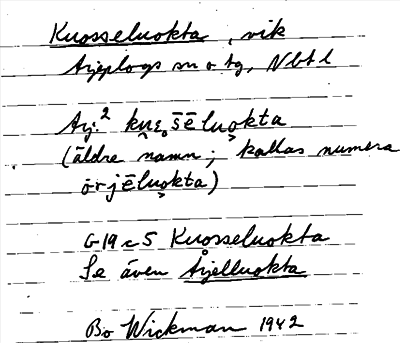 Kuosseluokta, vik
Arjeplogs sn o tg, Nbtl
Arj.² kuo̭šēluo̭kta
(äldre namn; kallas numera
örjēluo̭kta)
G 19 c 5 Kuosseluokta
Se även Årjelluokta
Bo Wickman 1942